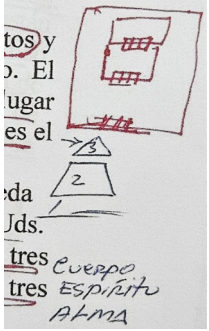 tos y
o. El
lugar
es el
3
2
eda
Uds.
tres
tres
CUERPO
ESPÍRITU
ALMA